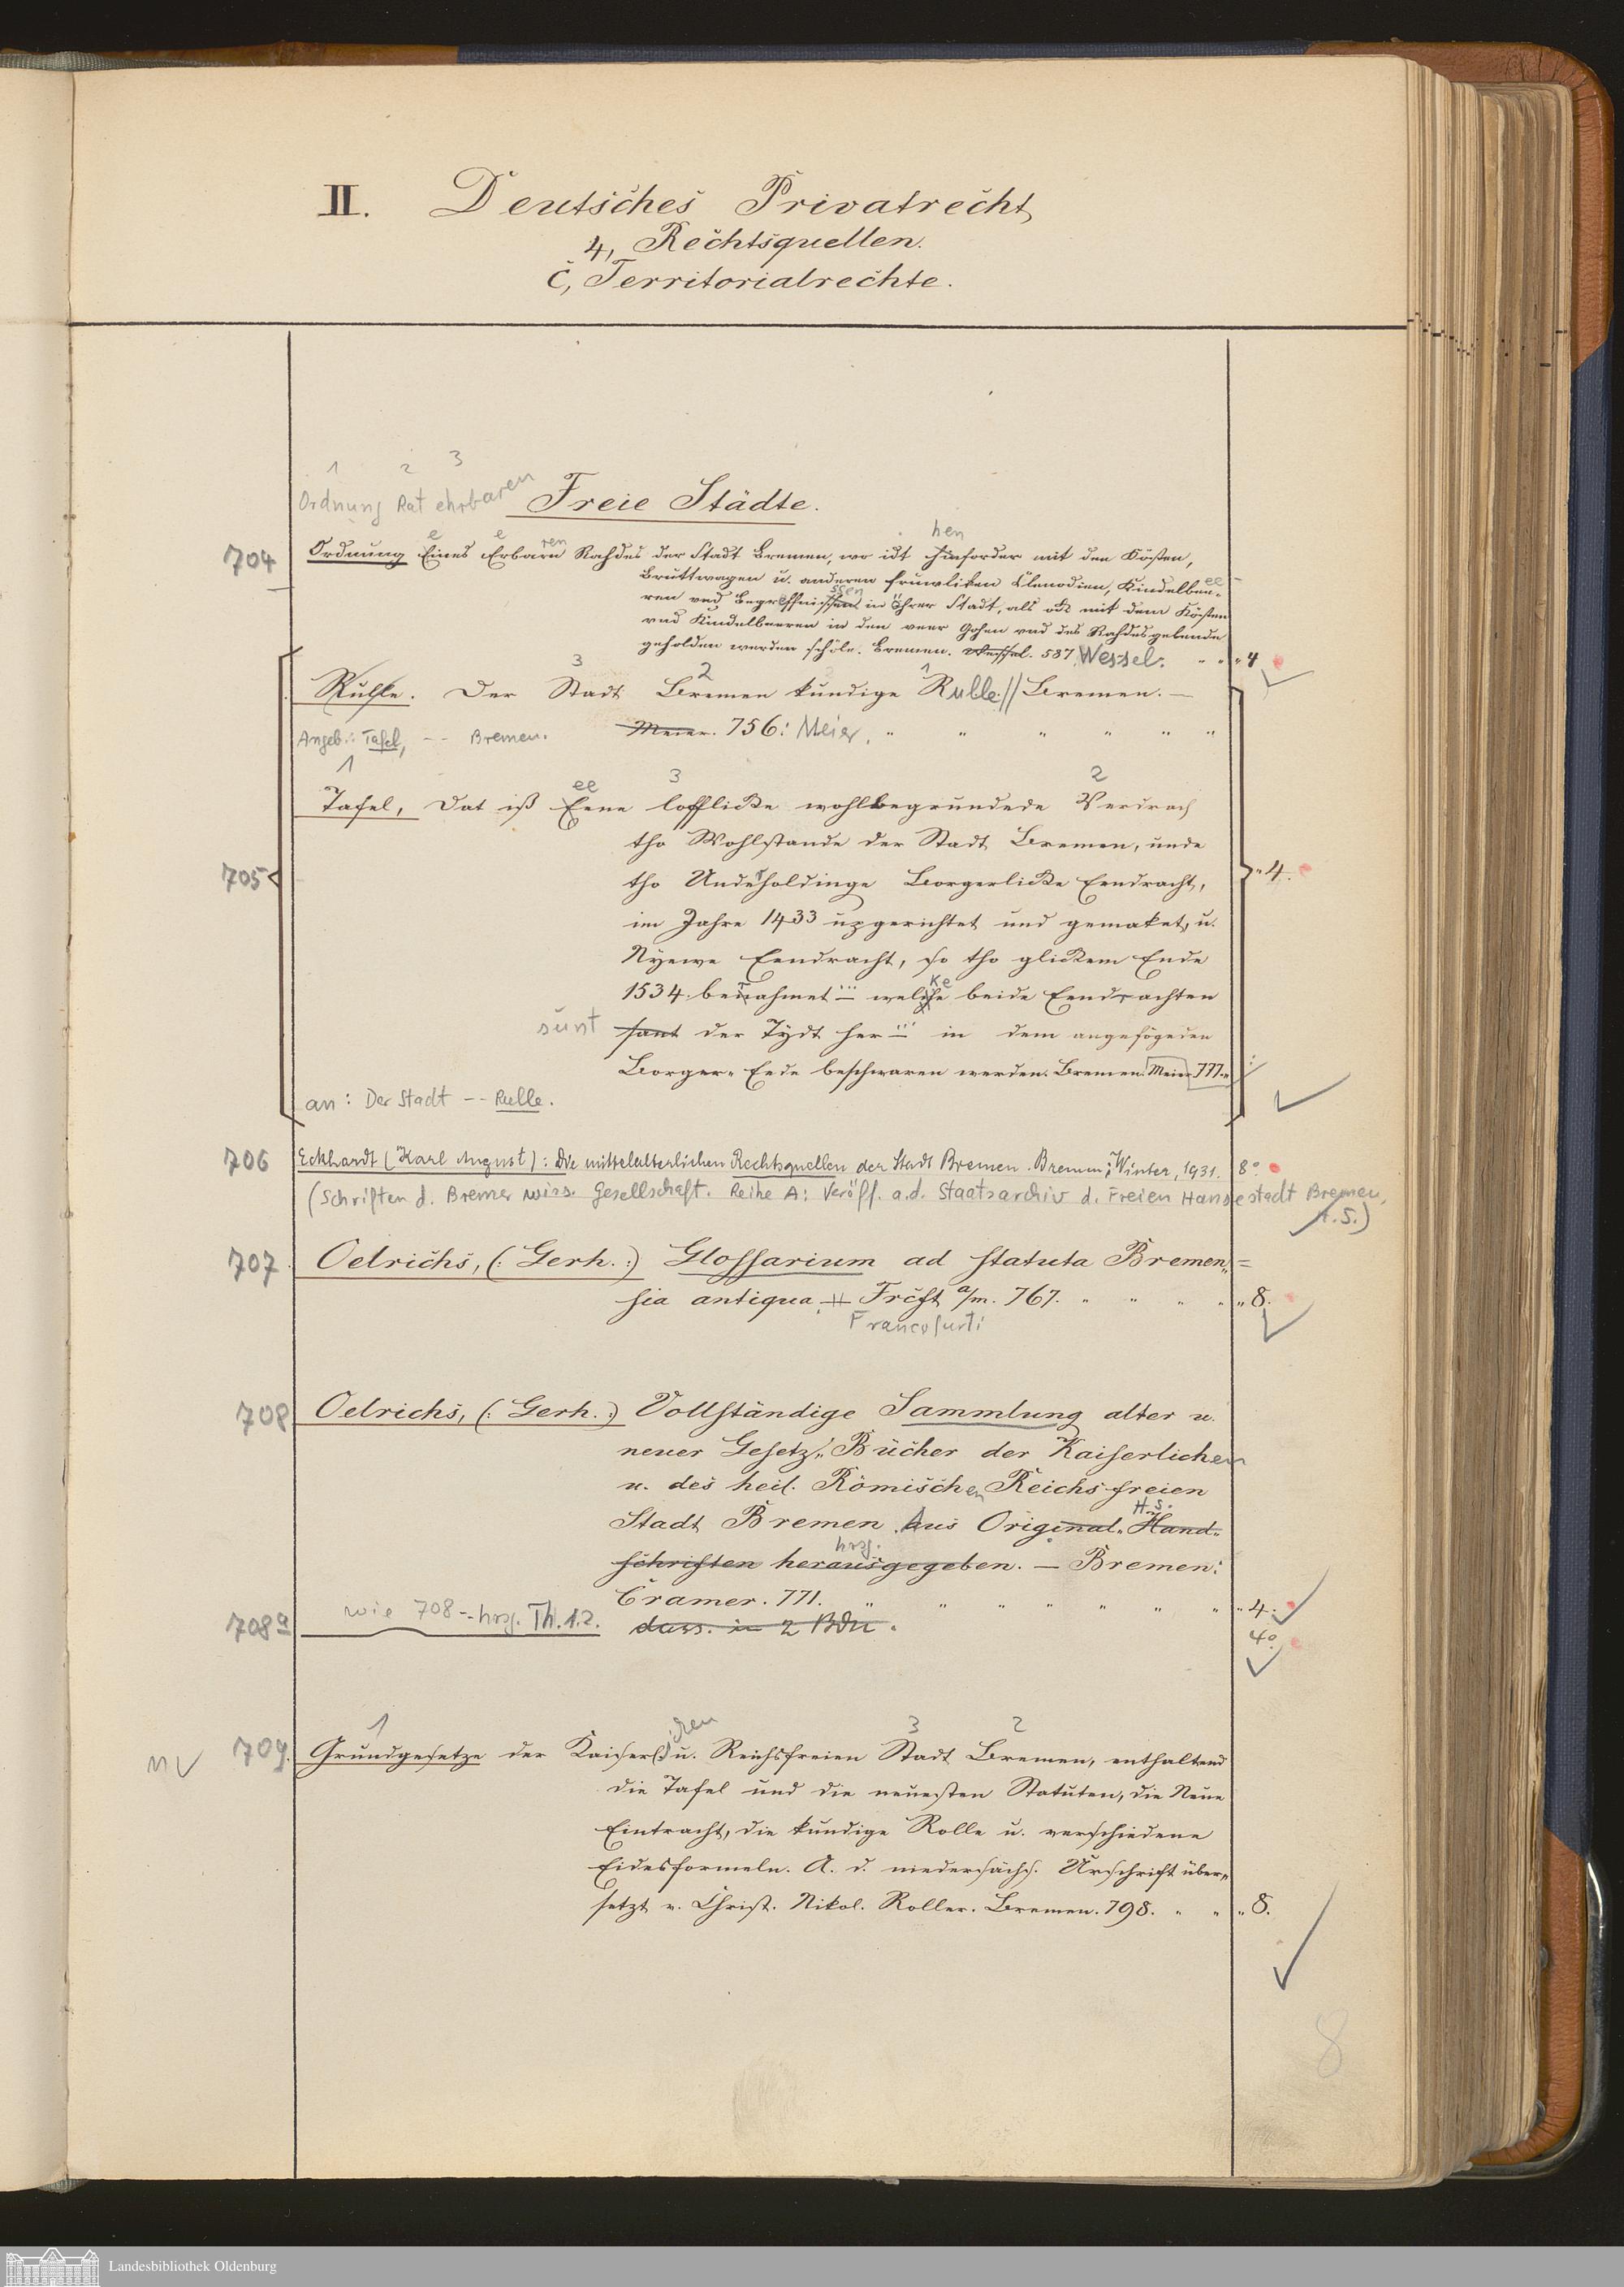 II. Deutsches Privatrecht
4, Rechtsquellen.
c, Territorialrechte.
1 2 3
Ordnung Rat ehrbaren
Freie Städte.
704
Ordnung Eines Erbarn Rahdes der Stadt Bremen, wo idt hinforder mit den Kösten,
e e ren hen
Bruttwagen u. anderen fruwliken Clenodien, Kindelbee-
ren vnd Begreffnissen in öhrer Stadt, als ock mit dem Kösten
ssen ee
vnd Kindelbeeren in den veer Gohen vnd des Rahdes gebende
geholden werden schöle. Bremen. Wessel. 587. Wessel. 4
3 2 1
Ruhle. Der Stadt Bremen kundige Rulle. // Bremen. —
Angeb.: Tafel, -- Bremen. Meier. 756: Meier.
1 ee 3 2
705
Tafel, Dat iß Eene lofflicke wohlbegrundede Verdrach
tho Wohlstande der Stadt Bremen, unde
tho Underholdinge Borgerlicke Eendracht,
im Jahre 1433 upgerichtet und gemaket, u.
Nyewe Eendracht, so tho glickem Ende
1534. benahmet ... welche beide Eendrachten
ke
sünt sant der Tydt her ... in dem angefögeden
Borger-Eede beschwaren werden. Bremen. Meier 777.
4.
an: Der Stadt -- Rulle.
706 Eckhardt (Karl August): Die mittelalterlichen Rechtsquellen der Stadt Bremen. Bremen: Winter, 1931. 8°.
(Schriften d. Bremer wiss. Gesellschaft. Reihe A: Veröff. a. d. Staatsarchiv d. Freien Hansestadt Bremen,
.S.)
707 Oelrichs, (: Gerh. :) Glossarium ad statuta Bremen-
sia antiqua. Frcft a/m. 767. 8.
Francofurti
708 Oelrichs, (: Gerh. :) Vollständige Sammlung alter u.
neuer Gesetz-Bücher der Kaiserlichen
u. des heil. Römischen Reichs freien
Stadt Bremen. Aus Original-Hand-
Hs.
schriften herausgegeben. — Bremen:
hrsg.
Cramer. 771. 4.
708a wie 708 -- hrsg. Th. 1.2. dass. in 2 Bdn. 4°
1 ichen 3 2
n 709. Grundgesetze der Kaiserl. u. Reichsfreien Stadt Bremen, enthaltend
die Tafel und die neuesten Statuten, die Neue
Eintracht, die kundige Rolle u. verschiedene
Eidesformeln. A. d. niedersächs. Urschrift über-
setzt v. Christ. Nikol. Roller. Bremen. 798. 8.
8
Landesbibliothek Oldenburg